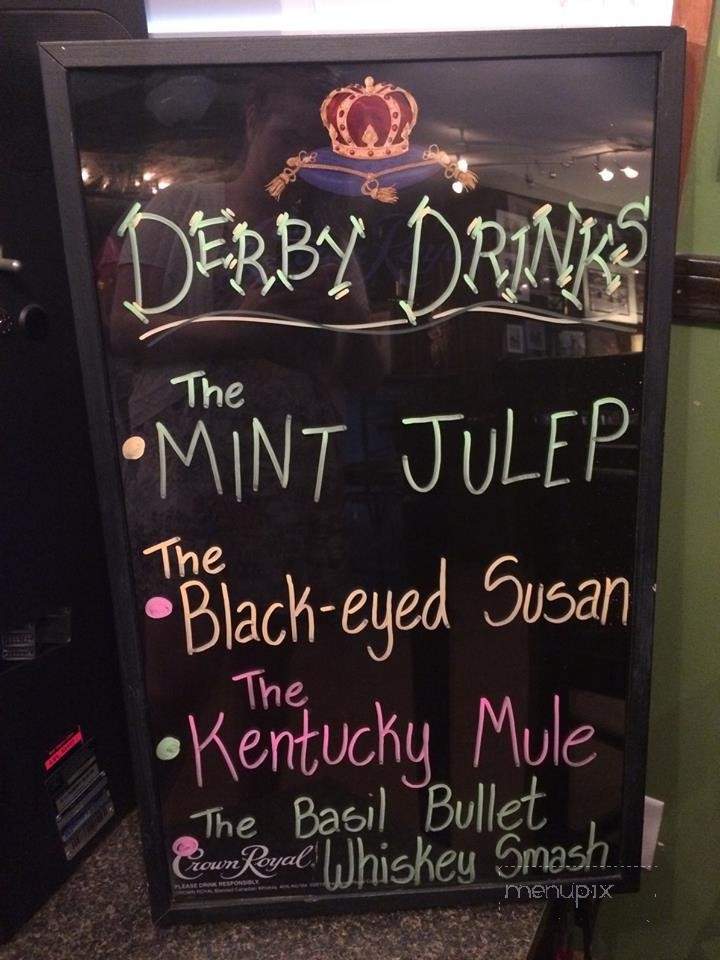 DERBY DRINKS
The
MINT JULEP
The
Black-eyed Susan
The
Kentucky Mule
The Basil Bullet
Whiskey Smash
Crown Royal
PLEASE DRINK RESPONSIBLY.
menupix